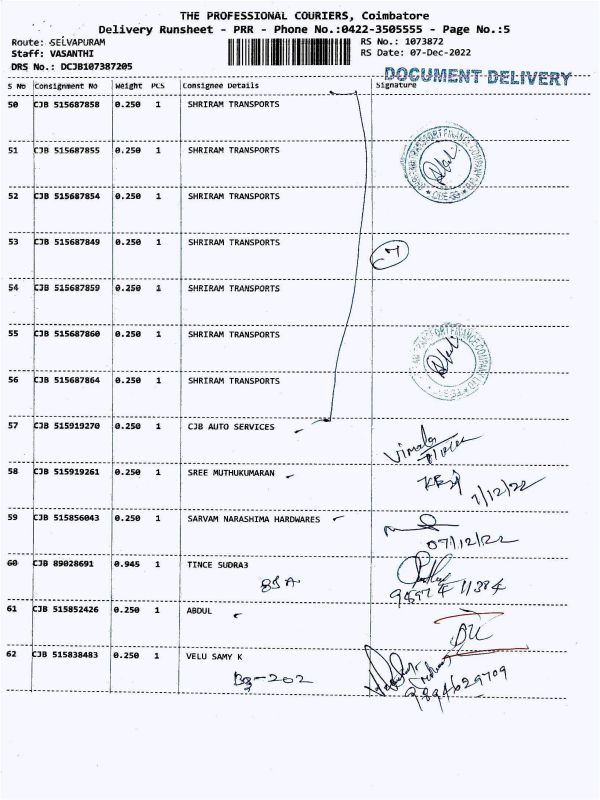 THE PROFESSIONAL COURIERS, Coimbatore
Delivery Runsheet - PRR - Phone No.:0422-3505555 - Page No.:5
Route: SELVAPURAM
RS No.: 1073872
Staff: VASANTHI
RS Date: 07-Dec-2022
DRS No.: DCJB107387205
DOCUMENT DELIVERY
S No Consignment No Weight PCS Consignee Details Signature
50 CJB 515687858 0.250 1 SHRIRAM TRANSPORTS
51 CJB 515687855 0.250 1 SHRIRAM TRANSPORTS
52 CJB 515687854 0.250 1 SHRIRAM TRANSPORTS
53 CJB 515687849 0.250 1 SHRIRAM TRANSPORTS
54 CJB 515687859 0.250 1 SHRIRAM TRANSPORTS
55 CJB 515687860 0.250 1 SHRIRAM TRANSPORTS
56 CJB 515687864 0.250 1 SHRIRAM TRANSPORTS
57 CJB 515919270 0.250 1 CJB AUTO SERVICES
Vimala
58 CJB 515919261 0.250 1 SREE MUTHUKUMARAN
7/12/22
59 CJB 515856043 0.250 1 SARVAM NARASHIMA HARDWARES
07/12/22
60 CJB 89028691 0.945 1 TINCE SUDRA3
85A
61 CJB 515852426 0.250 1 ABDUL
62 CJB 515838483 0.250 1 VELU SAMY K
9894629709